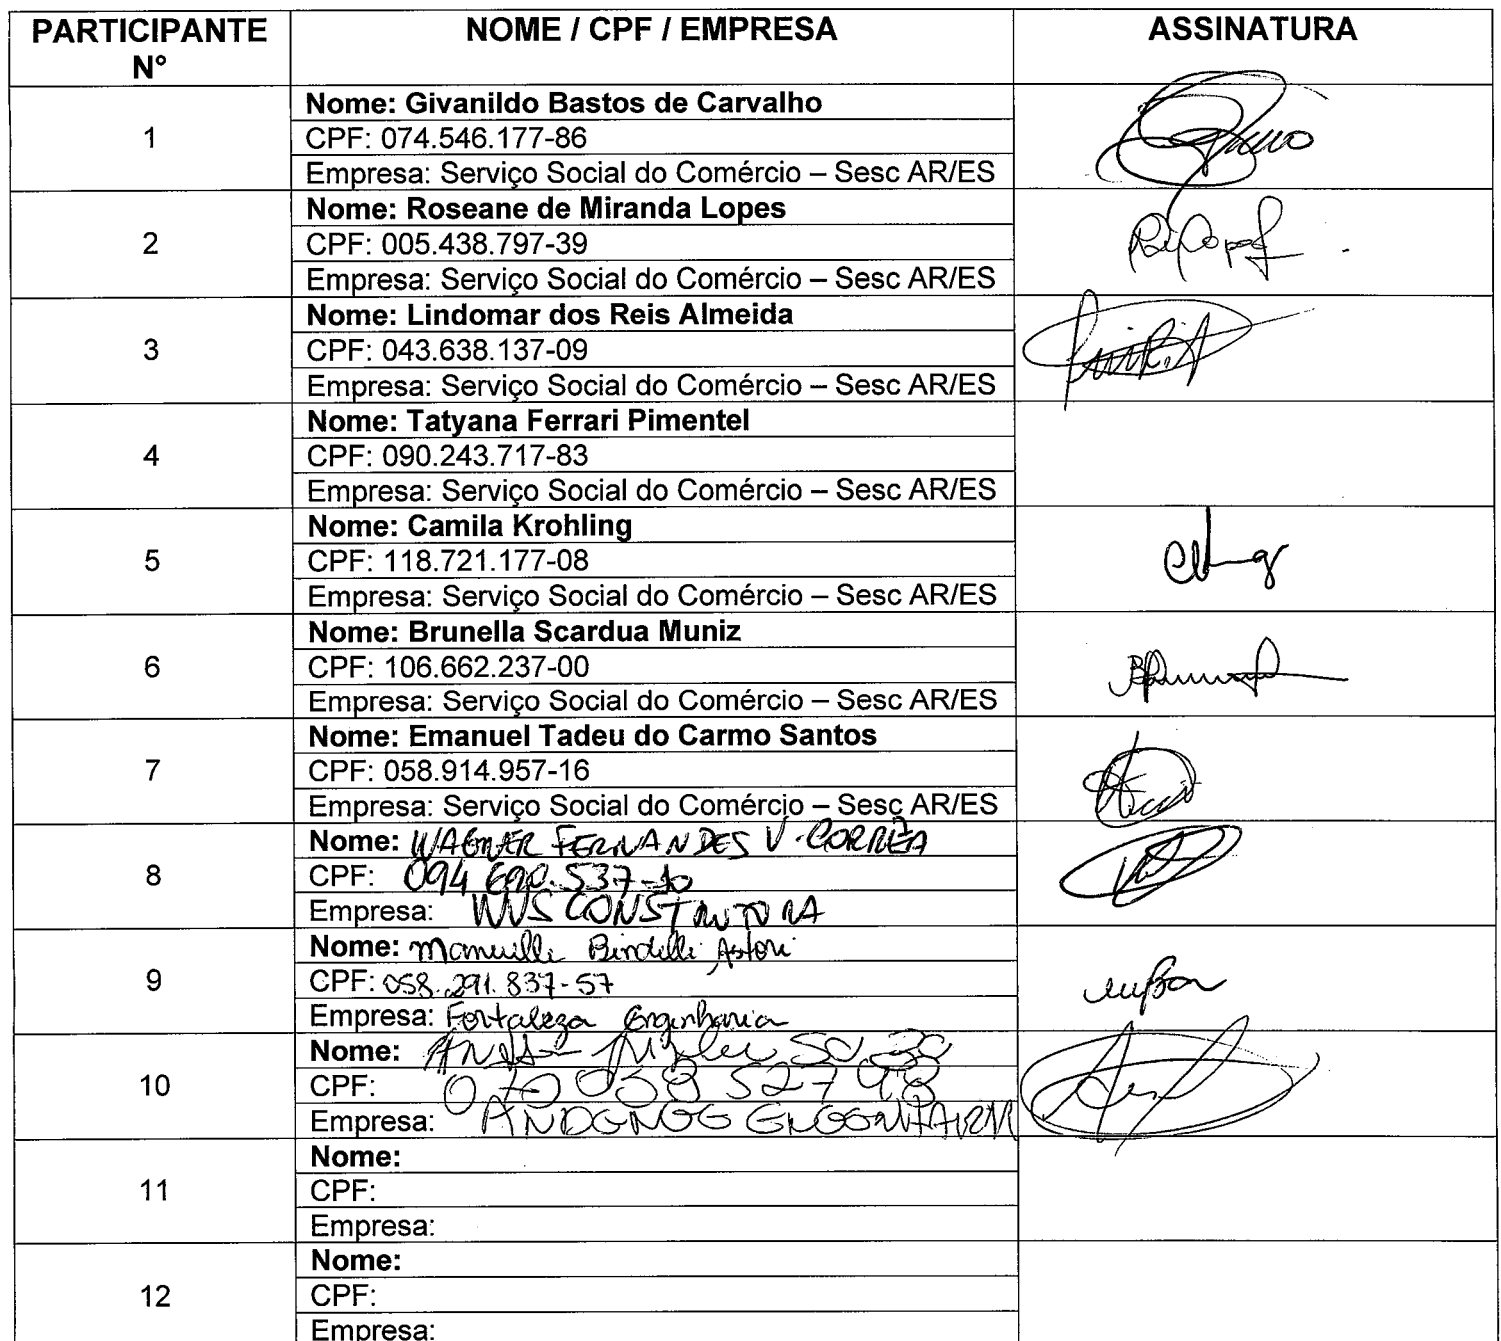 PARTICIPANTE N° NOME / CPF / EMPRESA ASSINATURA
1
Nome: Givanildo Bastos de Carvalho
CPF: 074.546.177-86
Empresa: Serviço Social do Comércio – Sesc AR/ES
2
Nome: Roseane de Miranda Lopes
CPF: 005.438.797-39
Empresa: Serviço Social do Comércio – Sesc AR/ES
3
Nome: Lindomar dos Reis Almeida
CPF: 043.638.137-09
Empresa: Serviço Social do Comércio – Sesc AR/ES
4
Nome: Tatyana Ferrari Pimentel
CPF: 090.243.717-83
Empresa: Serviço Social do Comércio – Sesc AR/ES
5
Nome: Camila Krohling
CPF: 118.721.177-08
Empresa: Serviço Social do Comércio – Sesc AR/ES
6
Nome: Brunella Scardua Muniz
CPF: 106.662.237-00
Empresa: Serviço Social do Comércio – Sesc AR/ES
7
Nome: Emanuel Tadeu do Carmo Santos
CPF: 058.914.957-16
Empresa: Serviço Social do Comércio – Sesc AR/ES
8
Nome: WAGNER FERNANDES V. CORRÊA
CPF: 094 690.537-10
Empresa: WVS CONSTRUTORA
9
Nome: Manuilli Astori
CPF: 058.291.837-57
Empresa: Fortaleza Engenharia
10
Nome:
CPF:
Empresa:
11
Nome:
CPF:
Empresa:
12
Nome:
CPF:
Empresa: